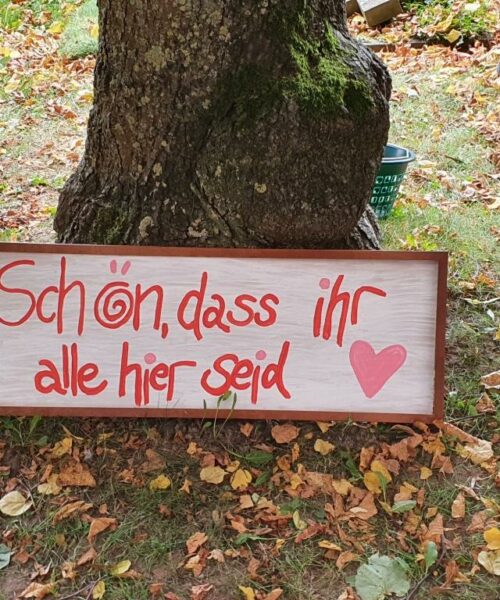 Schön, dass ihr
alle hier seid